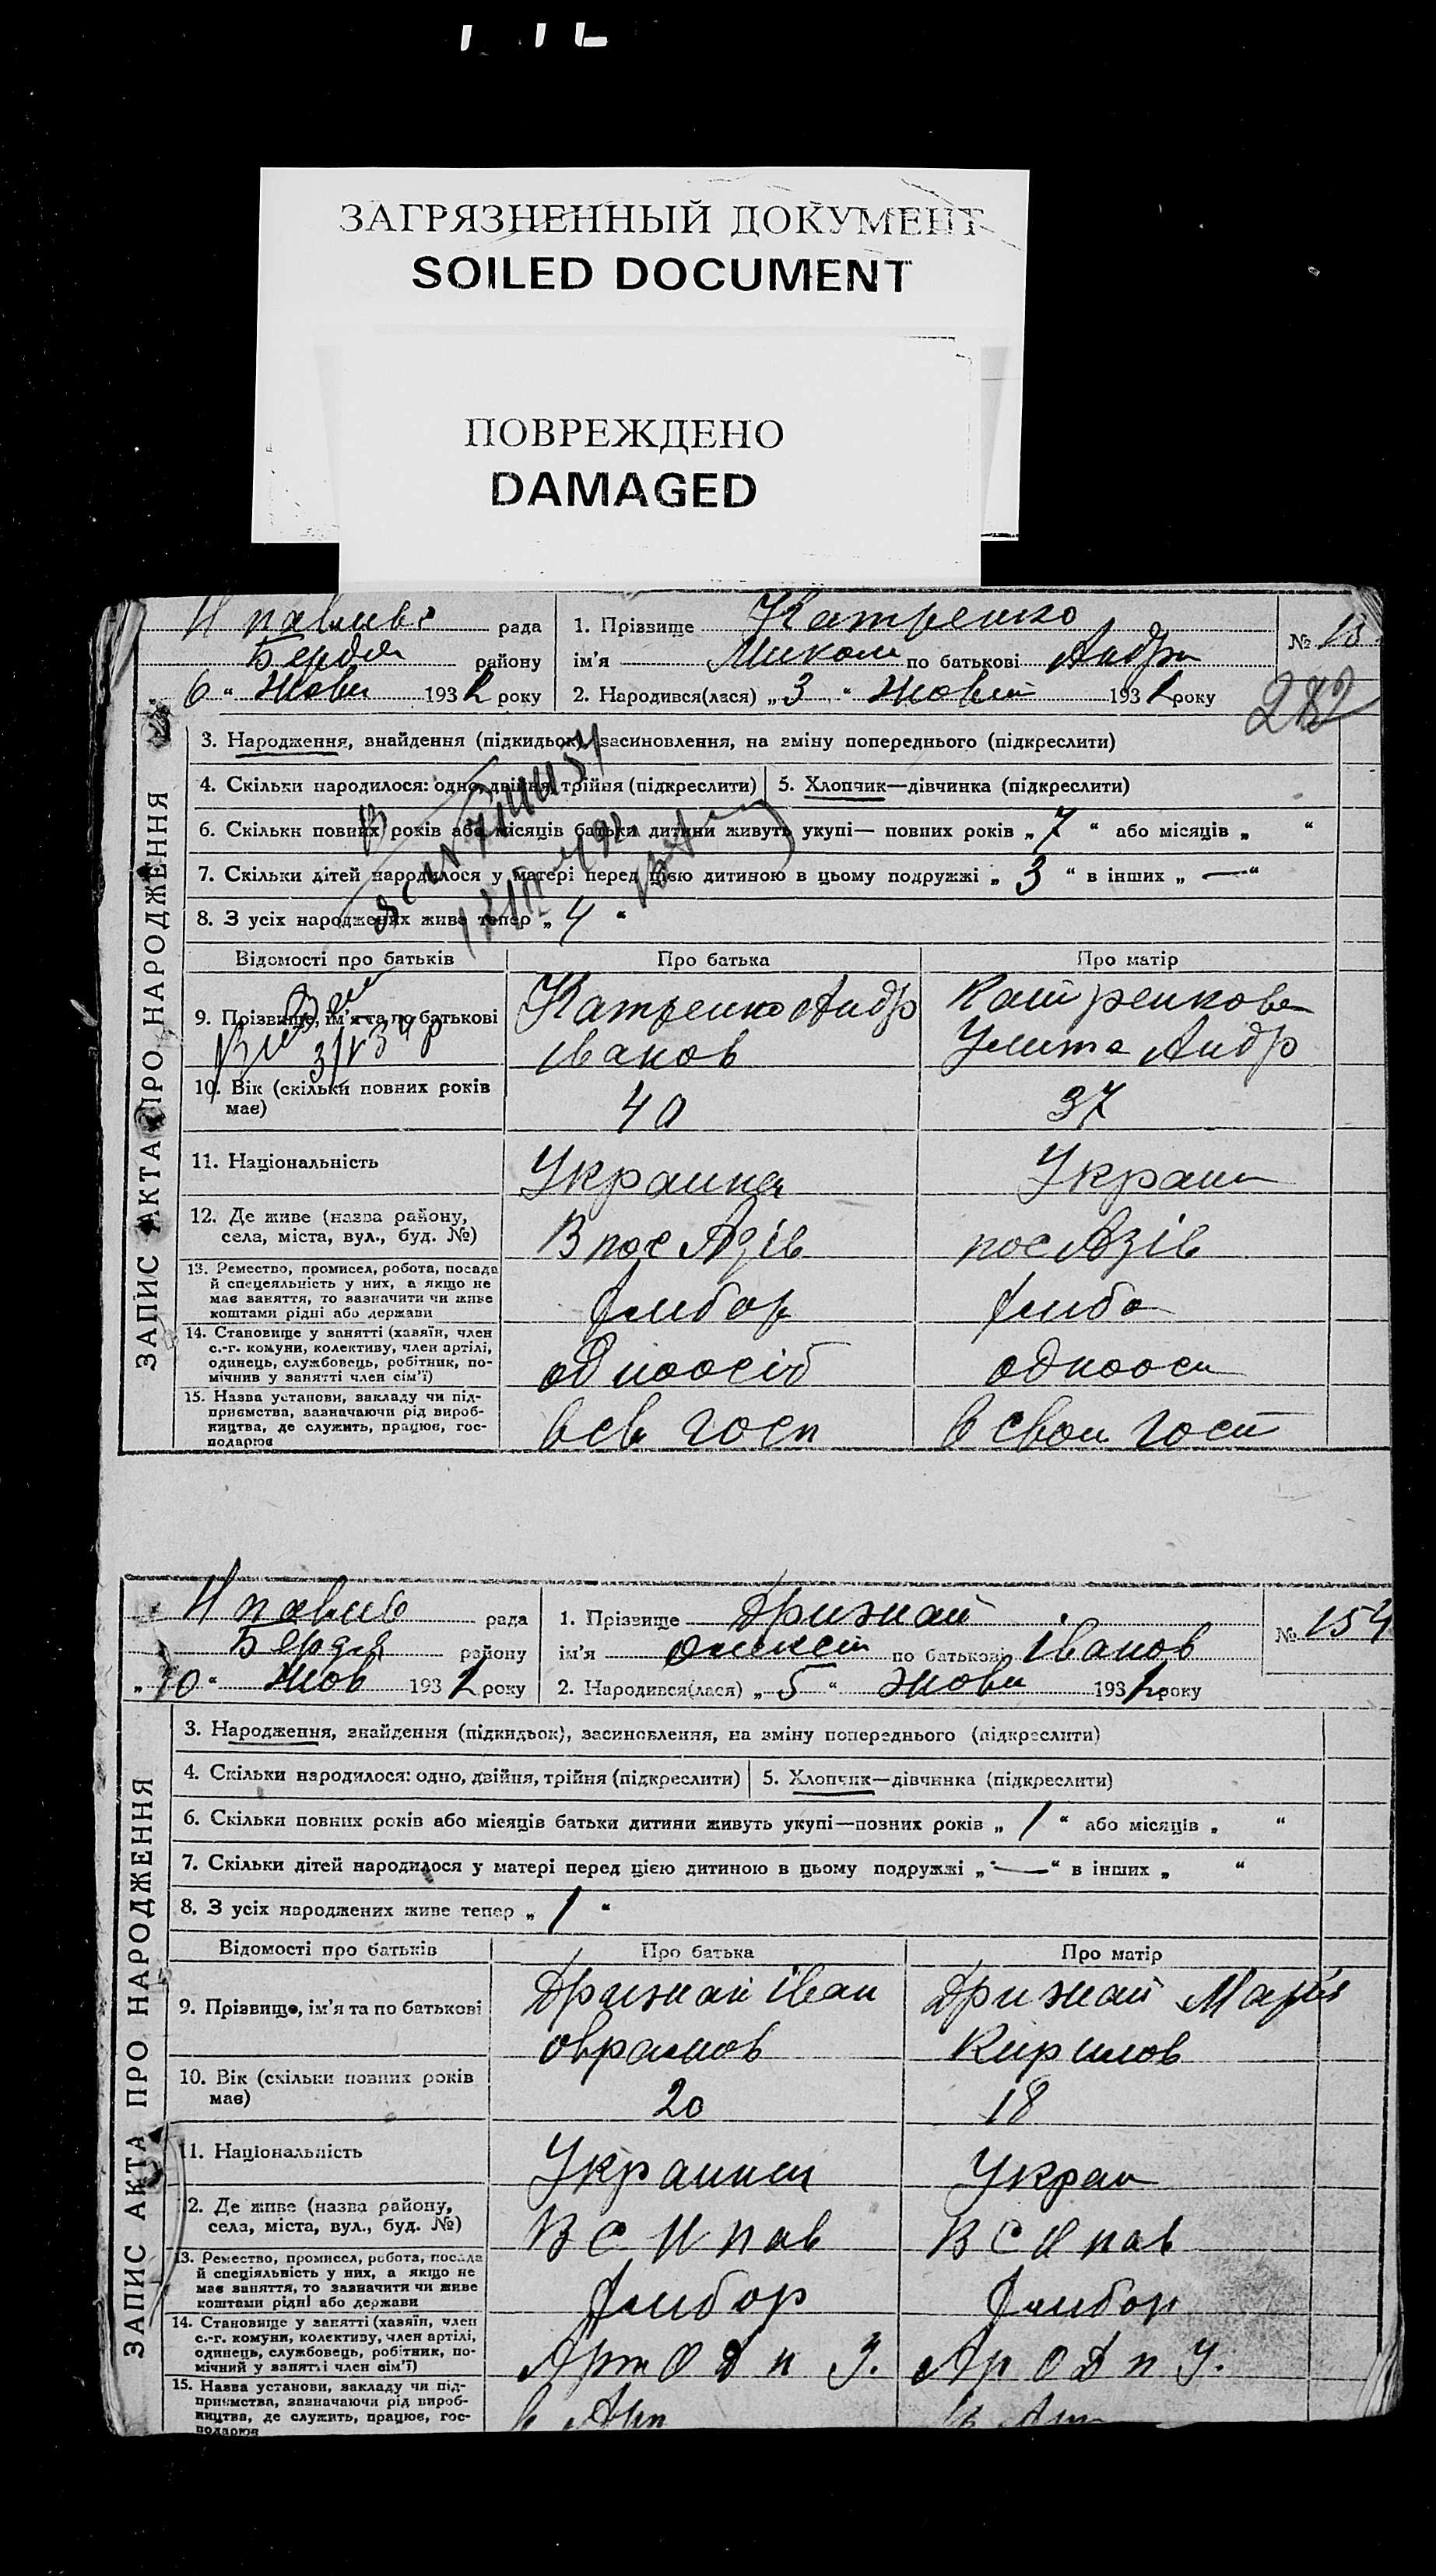 ЗАГРЯЗНЕННЫЙ ДОКУМЕНТ
SOILED DOCUMENT
ПОВРЕЖДЕНО
DAMAGED
ЗАПИС АКТА ПРО НАРОДЖЕННЯ
Н павлив рада
1. Прізвище Катренко
№ 15
Бердя району
ім'я Микола по батькові Андри
6 “ Жовт 1932 року
2. Народився(лася) „ 3 “ Жовт 1932 року
282
3. Народження, знайдення (підкидьок), засиновлення, на зміну попереднього (підкреслити)
4. Скільки народилося: одно, двійня, трійня (підкреслити)
5. Хлопчик—дівчинка (підкреслити)
6. Скільки повних років або місяців батьки дитини живуть укупі— повних років „ 7 “ або місяців „ “
7. Скільки дітей народилося у матері перед цією дитиною в цьому подружжі „ 3 “ в інших „ — “
8. З усіх народжених живе тепер „ 4 “
Відомості про батьків
Про батька
Про матір
9. Прізвище, ім'я та по батькові
Катренко Андр
Іванов
Катренкова
Улита Андр
10. Вік (скільки повних років
має)
40
37
11. Національність
Украина
Украин
12. Де живе (назва району,
села, міста, вул., буд. №)
В пос Азів
пос Азів
13. Ремество, промисел, робота, посада
й спецеяльність у них, а якщо не
має заняття, то зазначити чи живе
коштами рідні або держави
Хлибор
Хлибо
14. Становище у занятті (хазяїн, член
с.-г. комуни, колективу, член артілі,
одинець, службовець, робітник, по-
мічнив у занятті член сім'ї)
одноосіб
одноос
15. Назва установи, закладу чи під-
приємства, зазначаючи рід вироб-
ництва, де служить, працює, гос-
подарює
в св госп
в свои госп
ЗАПИС АКТА ПРО НАРОДЖЕННЯ
Н павлив рада
1. Прізвище Дрижай
№ 154
Бердя району
ім'я Олексій по батькові Іванов
„ 10 “ Жов 1932 року
2. Народився(лася) „ 5 “ Жовт 1932 року
3. Народження, знайдення (підкидьок), засиновлення, на зміну попереднього (підкреслити)
4. Скільки народилося: одно, двійня, трійня (підкреслити)
5. Хлопчик—дівчинка (підкреслити)
6. Скільки повних років або місяців батьки дитини живуть укупі—повних років „ 1 “ або місяців „ “
7. Скільки дітей народилося у матері перед цією дитиною в цьому подружжі „ — “ в інших „ “
8. З усіх народжених живе тепер „ 1 “
Відомості про батьків
Про батька
Про матір
9. Прізвище, ім'я та по батькові
Дрижай Іван
Оврамов
Дрижай Марія
Кирилов
10. Вік (скільки повних років
має)
20
18
11. Національність
Украинец
Украи
12. Де живе (назва району,
села, міста, вул., буд. №)
В С Н пав
В С Н пав
13. Ремество, промисел, робота, посада
й спеціяльність у них, а якщо не
має заняття, то зазначити чи живе
коштами рідні або держави
Хлибор
Хлибор
14. Становище у занятті (хазяїн, член
с.-г. комуни, колективу, член артілі,
одинець, службовець, робітник, по-
мічний у занятті член сім'ї)
15. Назва установи, закладу чи під-
приємства, зазначаючи рід вироб-
ництва, де служить, працює, гос-
подарює